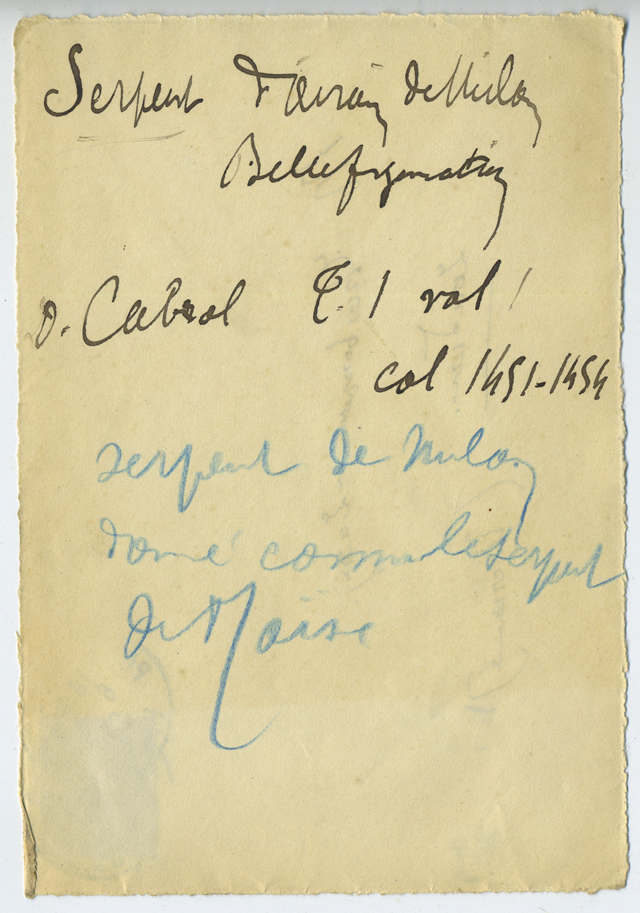 Serpent d'airain de Milan
Belle figuration
D. Cabrol T. 1 vol 1
col 1451-1454
serpent de Milan
donné comme le serpent
de Moïse